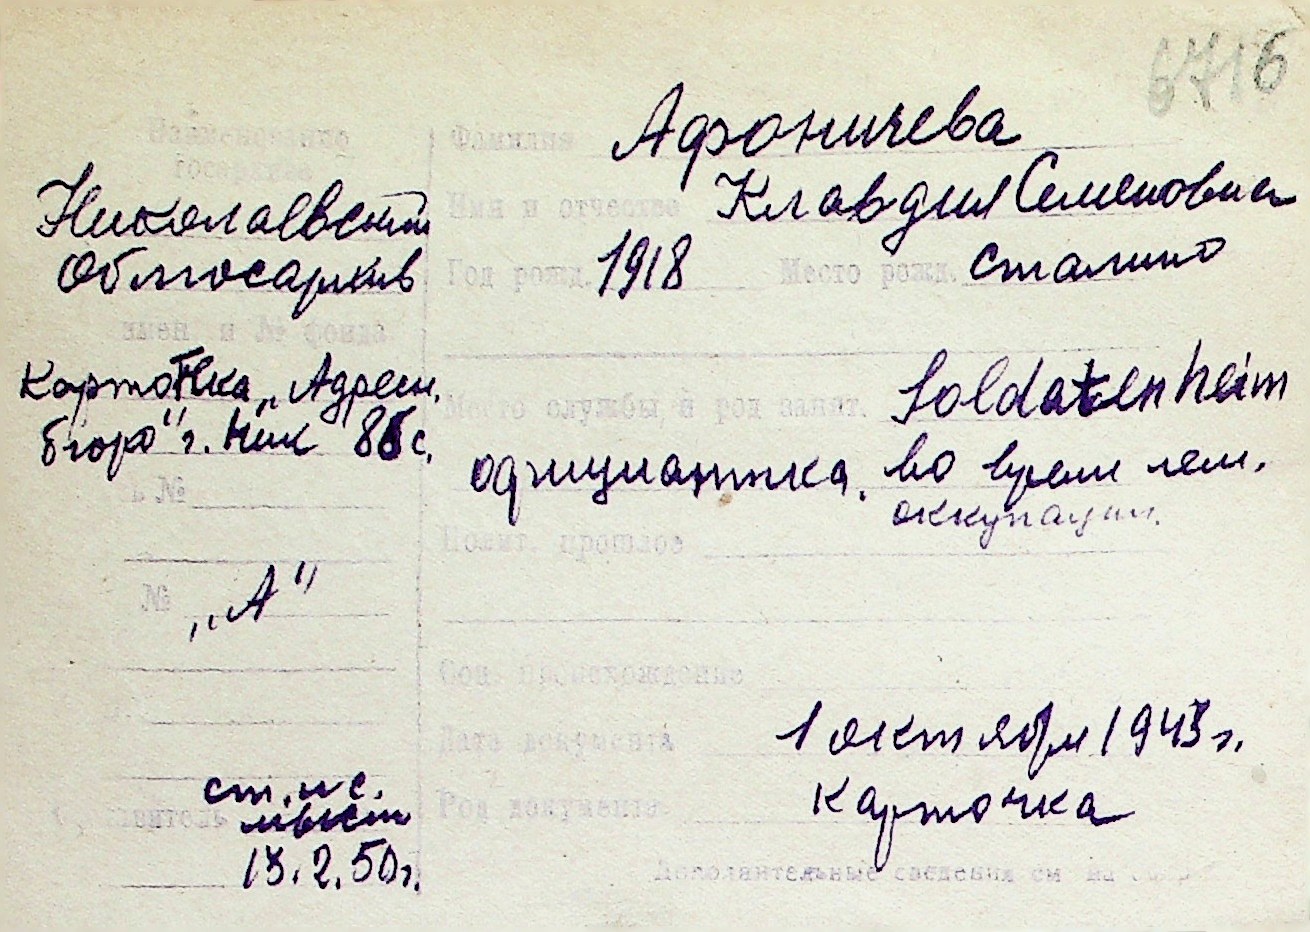 6716
Наименование
госархива
Николаевский
Облгосархив
наимен. и № фонда
Картотека „Адресн.
бюро" г. Ник 86 с.
№
№ „А"
ст. н с.
13.2.50г.
Фамилия Афоничева
Имя и отчество Клавдия Семеновна
Год рожд. 1918 Место рожд. Сталино
Место службы и род занят. Soldatenheim
официантка. во время нем.
оккупации.
Полит. прошлое
Соц. происхождение
Дата документа 1 октября 1943 г.
Род документа карточка
Дополнительные сведения см на